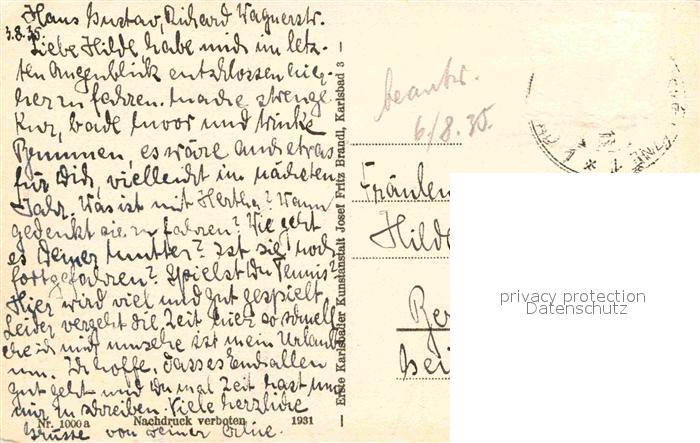 Haus Gustav, Richard Wagnerstr.
3.8.35
Liebe Hilde habe mich im letz-
ten Augenblick entschlossen hie-
her zu fahren. Mache strenge
Kur, bade Moor und trinke
Brunnen, es wäre auch etwas
für Dich, vielleicht im nächsten
Jahr. Was ist mit Hertha? Wann
gedenkt sie zu fahren? Wie geht
es Deiner Mutter? Ist sie noch
fortgefahren? Spielst Du Tennis?
Hier wird viel und gut gespielt
Leider vergeht die Zeit hier so schnell
ehe ich mich umsehe ist mein Urlaub
um. Ich hoffe, dass es Euch allen
gut geht und Du mal Zeit hast um
mir zu schreiben. Viele herzliche
Grüsse von Deiner
Nr. 1000a Nachdruck verboten 1931
Erste Karlsbader Kunstanstalt Josef Fritz Brandl, Karlsbad 3
beantw.
6/8.35.
Fräulein
Hilde
Ber
bei
privacy protection
Datenschutz